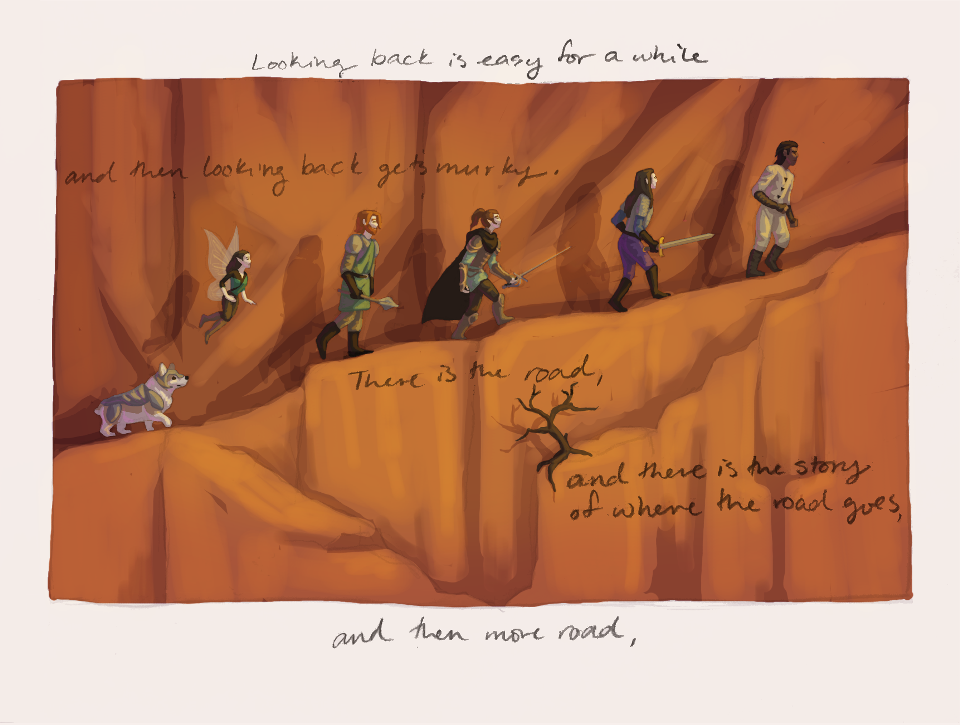 Looking back is easy for a while
and then looking back gets murky.
There is the road,
and there is the story
of where the road goes,
and then more road,